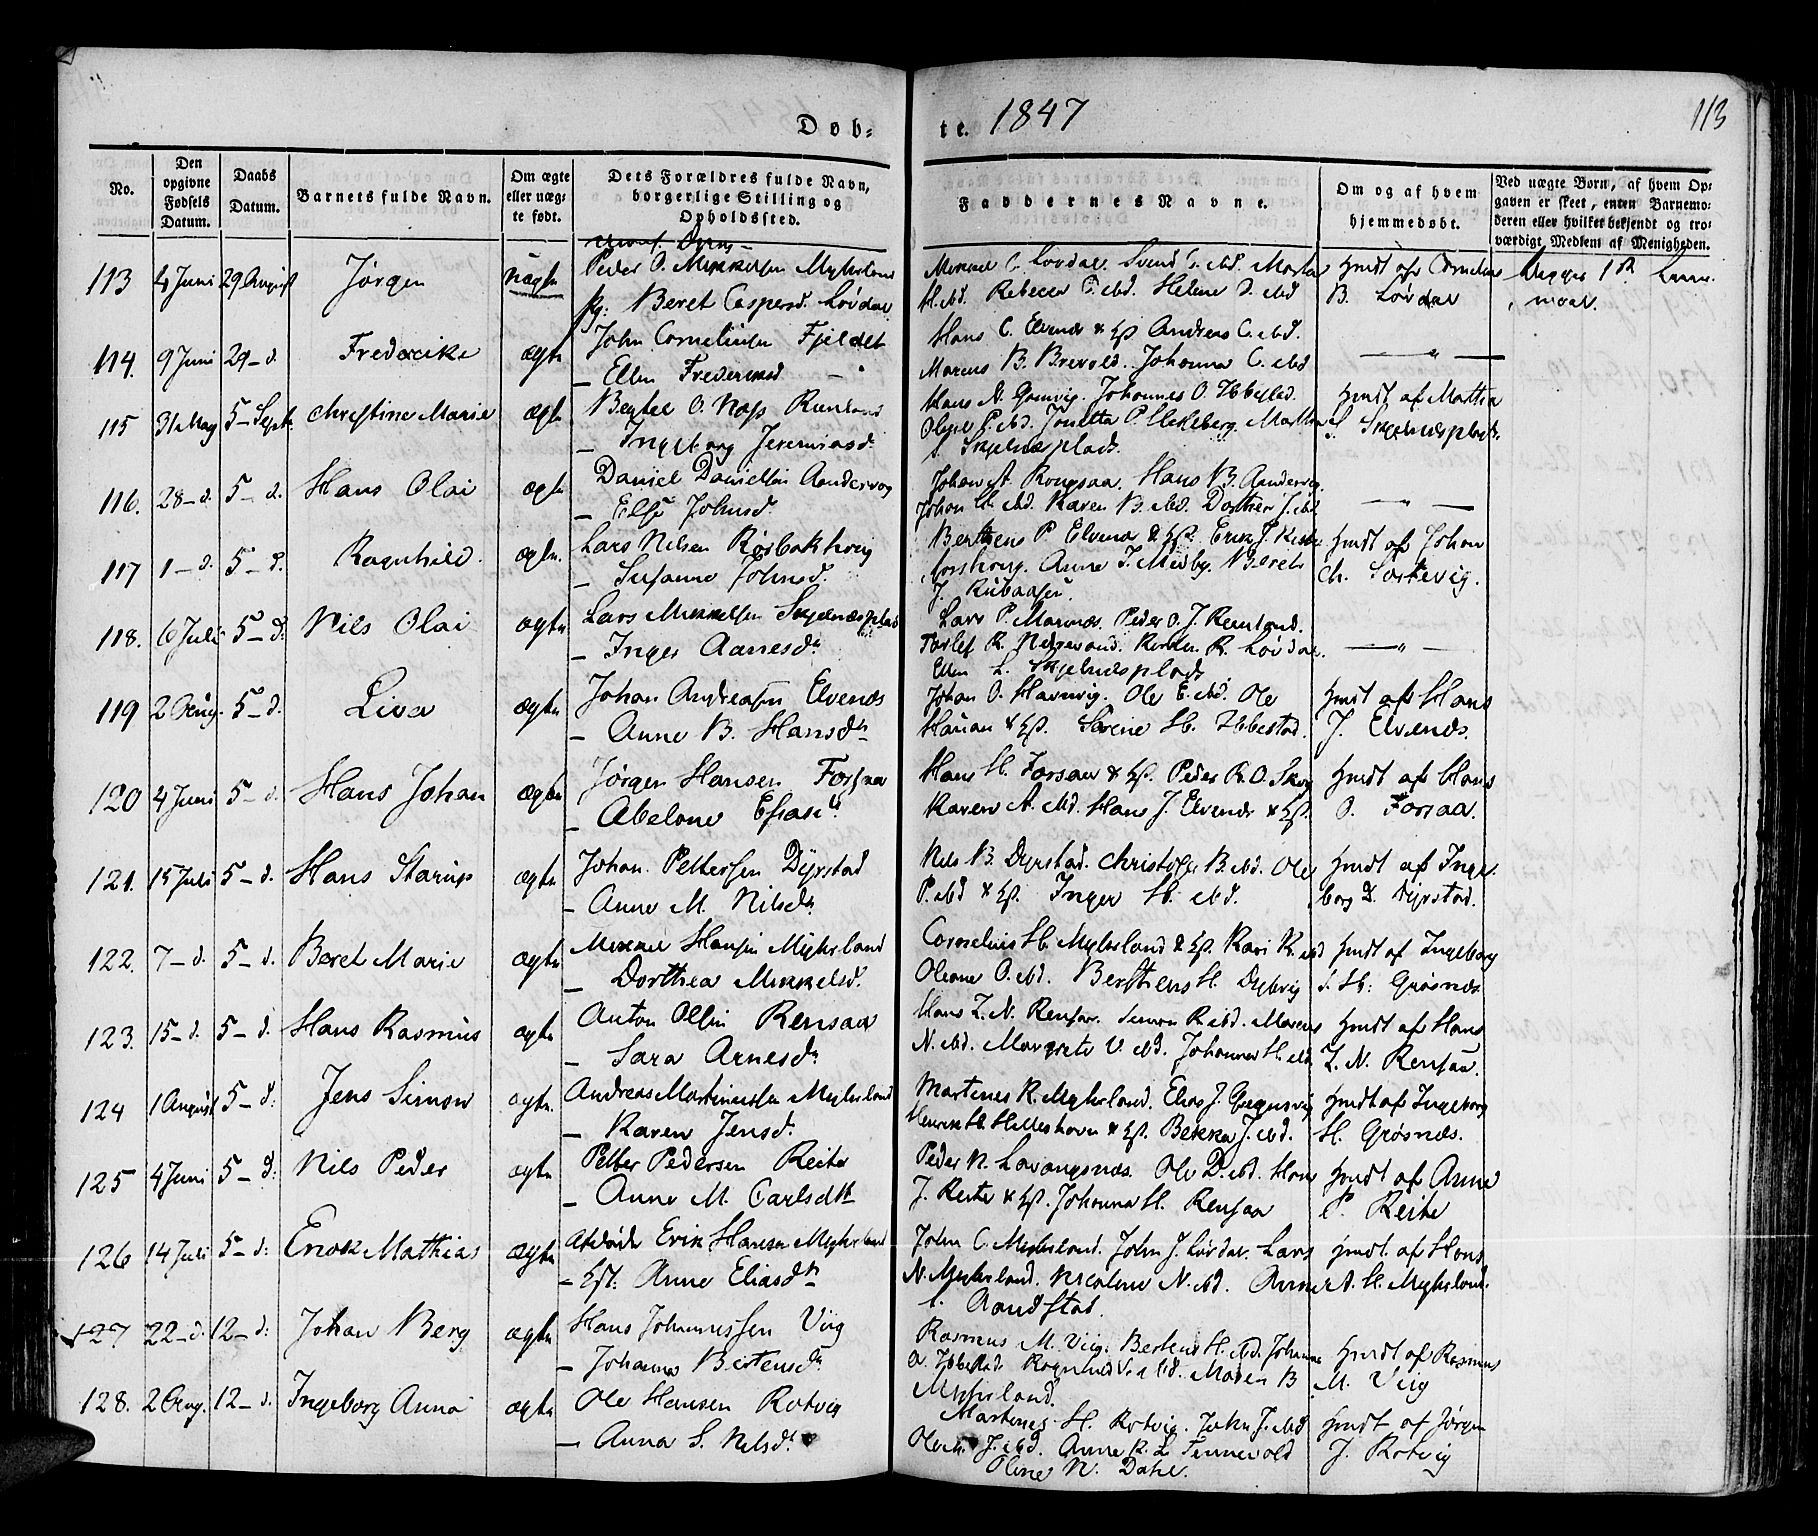 Døb-
te. 1847
113
No.
Den opgivne Fødsels Datum.
Daabs Datum.
Barnets fulde Navn.
Om ægte eller uægte født.
Dets Forældres fulde Navn, borgerlige Stilling og Opholdssted.
Faddernes Navne.
Om og af hvem hjemmedøbt.
Ved uægte Børn, af hvem Opgaven er skeet, enten Barnemoderen eller hvilket bekjendt og troværdigt Medlem af Menigheden.
113 4 Juni 29 August Jørgen uægte Peder O. Mikkelsen Myhrland
pg: Beret Caspersd. Løvdal
Rebecca Helene
hmdt af Cornelius
B. Løvdal
114. 9 Juni 29 - d. Frederike ægte John Cornelius Fjeldet
- Ellen
Hans C. Elvenes & Hst. Andreas C. ibd.
Marcus B. Brevold. Johanna C. ibd
— " —
115 31 May 5 - Sept. Christine Marie ægte Bertel O. Næss Runlons
- Ingeborg Jeremiasd.
Hans N. Gamvig. Johannes O. Ibbestad.
Skjelnæsplads.
hmdt af Mattia
S. Skjelnæsplads.
116. 28 - d. 5 - d. Hans Olai ægte Daniel Danielsen Aandervog
- Else Johnsd.
Hans B. Aandervig.
Karen B. ibd. Dorthea J. ibd
— " —
117 1 - d. 5 - d. Ragnhild. ægte. Lars Nilsen Rørbakhoug
- Susanna Johnsd.
Berthens P. Elvenæ & Hst. Erik J.
Anne J. Medby. Berit
J.
hmdt af Johan
Ch. Sørvig.
118. 6 Juli 5 - d. Nils Olai ægte Lars Mikkelsen Skjelnæsplads
- Inger Aanesd.
Lars P. Marinæs. Peder O. J. Remland.
R. Løvdal.
Ellen L. Skjelnæsplads
— " —
119 2 Aug. 5 - d. Liva ægte Johan Andreasen Elvenæs
- Anne B. Hansd.
Johan O. Havnvig. Ole E. ibd. Ole
Hanan & Hst. Sørine H. Ibbestad.
hmdt af Hans
J. Elvenæs.
120 4 Juni 5 - d. Hans Johan ægte Jørgen Hansen Forsaa
- Abelone Esaias.
Hans H. Forsaa & Hst. Peder R. O. Skog
Karen A. ibd. Hans J. Elvenes & Hst.
hmdt af Hans
O. Forsaa.
121. 15 Juli 5 - d. Hans Starup ægte Johan Pettersen Dyrstad
- Anne M. Nilsd.
Nils B. Dyrstad. Christoffer B. ibd. Ole
P. ibd & Hst. Inger H. ibd.
hmdt af Inge-
borg D. Dyrstad.
122. 7 - d. 5 - d. Beret Marie ægte Mikkel Hansen Myhrland
- Dorthea Mikkelsd.
Cornelius H. Myhrland & Hst. Kari K. ibd
Oleane O. ibd. Berthens H. Dybvig
hmdt af Ingeborg
H: Grøsnæs.
123. 15 - d. 5 - d. Hans Rasmus ægte Anton Olsen Rensaa
- Sara Arnesd.
Hans Z. N. Rensaa. Simon R. ibd. Marcus
N. ibd. Margrete V. ibd. Johanna H. ibd
hmdt af Hans
Z. N. Rensaa.
124 1 August 5 - d: Jens Simon ægte. Andreas Martinussen Myhrland
- Karen Jensd.
Martenes R. Myhrland. Elias J. Grøgnsvig
Henrik H. Hilleshavn & Hst. Bekka J. ibd.
hmdt af Ingeborg
H. Grøsnæs.
125 4 Juni 5 - d: Nils Peder ægte Petter Pedersen Reite
- Anne M. Carlsd.
Peder N. Lavangsnæs. Ole D. ibd. Hans
J. Reite & Hst. Johanna H. Rensaa
hmdt af Anne
P. Reite
126 14 Juli 5 - d: Enok Mathias ægte Afdøde Erik Hansen Myhrland
- Hst. Anne Eliasd.
John C. Myhrland. John J. Løvdal. Lars
N. Myhrland. Nicoline N. ibd. Anne
Aandstad.
hmdt. af Hans
A. H. Myhrland.
127 22 - d. 12 - d: Johan Berg ægte Hans Johannessen Viig
- Johanna Bertensd.
Rasmus M. Viig. Bertens H. ibd. Johanna
A. Ibbestad. Ragnhild ibd. Maren B
Myhrland.
hmdt af Rasmus
M. Viig
128. 2 Aug. 12 - d. Ingeborg Anna ægte Ole Hansen Rotvig
- Anna S. Nilsd.
Martenes H. Rotvig. John J. ibd
J. ibd. Anne K. L. Tennevold
Oline N. Dahl.
hmdt af Jørgen
J. Rotvig